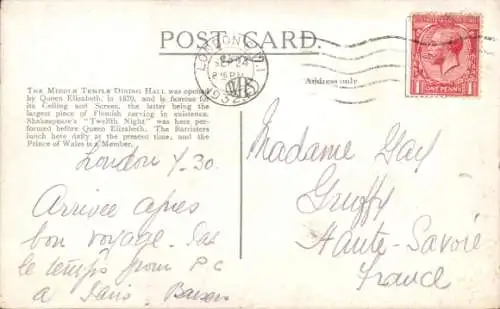 POST CARD.
LONDON W.1
SEP 24
1932
ONE PENNY
Address only
THE MIDDLE TEMPLE DINING HALL was opened
by Queen Elizabeth, in 1570, and is famous for
its Ceiling and Screen, the latter being the
largest piece of Flemish carving in existence.
Shakespeare's "Twelfth Night" was here per-
formed before Queen Elizabeth. The Barristers
lunch here daily at the present time, and the
Prince of Wales is a Member.
London 7.30
Arrivée après
bon voyage. Pas
le temps pour P C
à Paris. Baisers
Madame Gay
Gruffy
Haute-Savoie
France